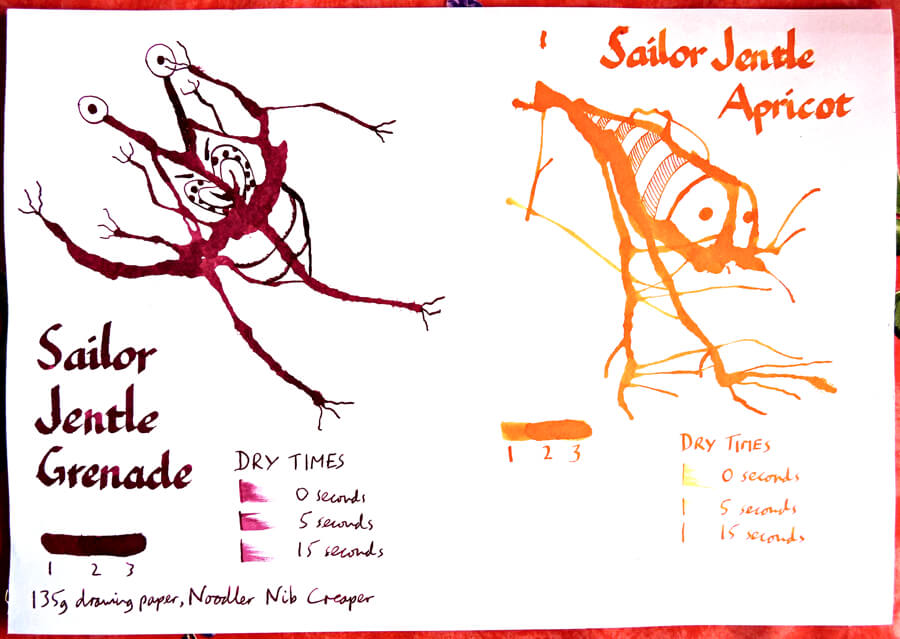 Sailor
Jentle
Grenade
DRY TIMES
0 seconds
5 seconds
15 seconds
1 2 3
135g drawing paper, Noodler Nib Creaper
Sailor Jentle
Apricot
1 2 3
DRY TIMES
0 seconds
5 seconds
15 seconds